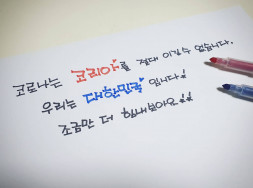 코로나는 코리아를 절대 이길 수 없습니다.
우리는 대한민국 입니다!
조금만 더 힘내보아요!!